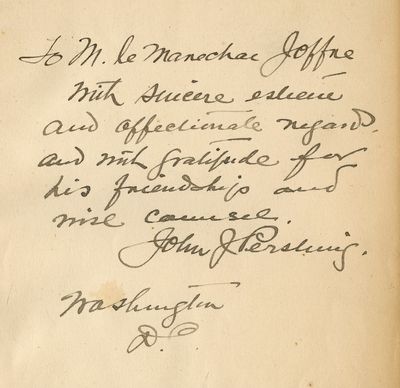 To M. le Marechal Joffre
with sincere esteem
and affectionate regard,
and with gratitude for
his friendship and
wise counsel.
John J. Pershing.
Washington
D.C.